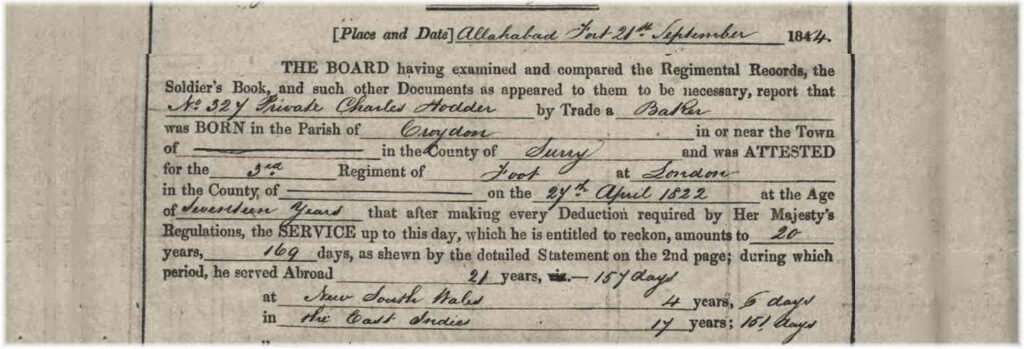 [Place and Date] Allahabad Fort 21st September 1844.
THE BOARD having examined and compared the Regimental Records, the
Soldier's Book, and such other Documents as appeared to them to be necessary, report that
No 327 Private Charles Hodder by Trade a Baker
was BORN in the Parish of Croydon in or near the Town
of in the County of Surry and was ATTESTED
for the 3rd Regiment of Foot at London
in the County of on the 27th April 1822 at the Age
of Seventeen Years that after making every Deduction required by Her Majesty's
Regulations, the SERVICE up to this day, which he is entitled to reckon, amounts to 20
years, 169 days, as shewn by the detailed Statement on the 2nd page; during which
period, he served Abroad 21 years, viz.— 157 days
at New South Wales 4 years, 6 days
in the East Indies 17 years; 151 days
"